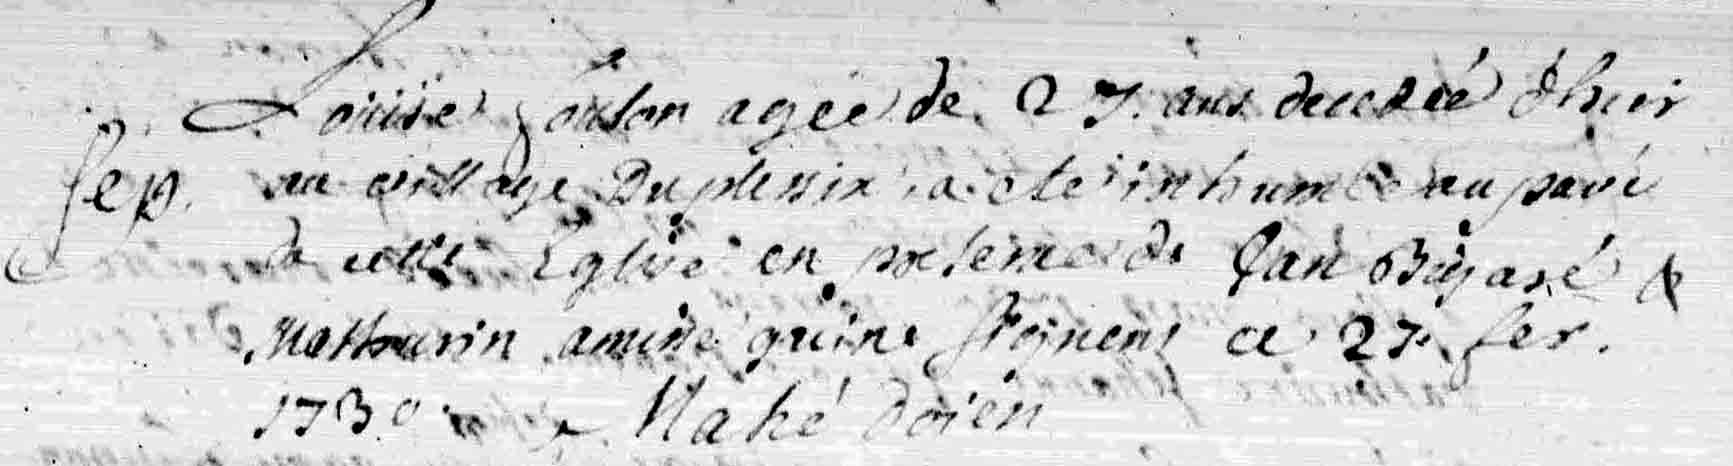 Louise agée de 27 ans decedée d'hier
Sep. au village Duplessix a eté inhumée au pavé
de cette Eglise en presence de Jan Bizaré &
Mathurin qui ne signent ce 27 fev.
1730 Mahé doien